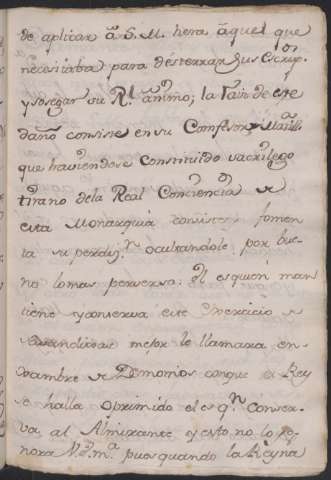 de aplicar â S. M. hera âquel que
necesitaba para desterrar sus escrup.os
y sosegar su R.l ânimo; la raiz de este
daño consiste en su Confesor
que haviendose Constituido sacrilego
tirano dela Real Conciencia de
esta Monarquia consiste y fomen
ta su perdiz.n ocultandole por bue
no lo mas perverso. Êl es quien man
tiene y conserva este Exercicio de
mejor le llamara en
xambre de Demonios con que el Rey
se halla oprimido el es q.n conser
va al Almirante y esto no lo ig
nora V. E.m.a pues quando la Reyna